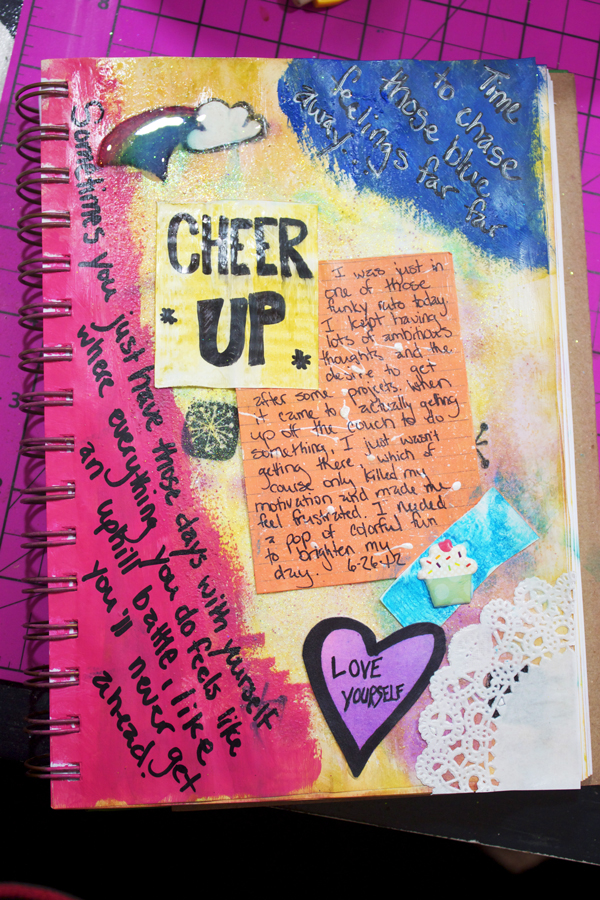 Time
to chase
those blue
feelings far far
away...
Sometimes you just have those days with yourself
where everything you do feels like
an uphill battle, like
you'll never get
ahead.
CHEER
UP
I was just in
one of those
funky ruts today.
I kept having
lots of ambitious
thoughts and the
desire to get
after some projects. When
it came to actually getting
up off the couch to do
something, I just wasn't
getting there, which of
course only killed my
motivation and made me
feel frustrated. I needed
a pop of colorful fun
to brighten my
day. 6-26-12
LOVE
YOURSELF